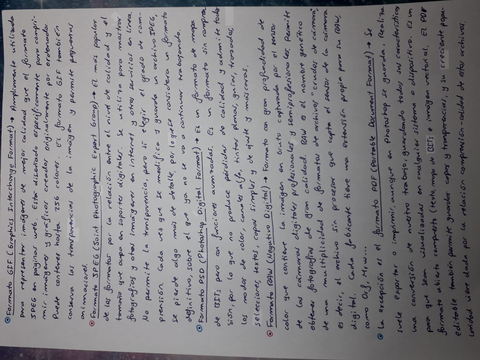 ⊙ Formato GIF (Graphics Interchange Format) → Ampliamente utilizado
para representar imágenes de mejor calidad que el formato
JPEG en páginas web. Está diseñado específicamente para comprimir
imágenes y gráficos creados originalmente por ordenador
Puede contener hasta 256 colores. El formato GIF también
conserva las transparencias de la imagen y permite pequeñas
animaciones.
⊙ Formato JPEG (Joint Photographic Expert Group) → El más popular
de los formatos por la relación entre el nivel de calidad y el
tamaño que ocupa en soportes digitales. Se utiliza para mostrar
fotografías y otras imágenes en internet y otros servicios en línea
No permite la transparencia, pero sí elegir el grado de com-
presión. Cada vez que se modifica y guarda un archivo JPEG,
se pierde algo más de detalle, por lo que se considera un formato
definitivo, sobre el que ya no se va a continuar trabajando.
⊙ Formato PSD (Photoshop Digital Format) → Es un formato de mapa
de bits pero con funciones avanzadas. Es un formato sin compre
sión, por lo que no produce pérdidas de calidad y admite todo
los modos de color, canales alfa, tintas planas, guías, trazados,
selecciones, textos, capas simples y de ajuste y máscaras.
⊙ Formato RAW (Negativo Digital) → Formato con gran profundidad de
color que contiene la imagen en bruto capturada por el sensor
de las cámaras digitales profesionales y semiprofesionales. Permite
obtener fotografías de gran calidad. RAW es el nombre genérico
de una multiplicidad de formatos de archivos "crudos" de cámara;
es decir, el archivo sin procesar que capta el sensor de la cámara
digital. Cada fabricante tiene una extensión propia para su RAW,
como
⊙ La excepción el formato PDF (Portable Document Format) → Se
suele exportar o imprimir, aunque en Photoshop se guarda. Realiza
una conversión de nuestro trabajo guardando todas sus característica
para que sean visualizadas en cualquier sistema o dispositivo. Es un
formato abierto compuesto texto, mapa de bits e imagen vectorial. El PDF
Editable también permite guardar capas y transparencias, y su creciente popu-
laridad viene dada por la relación compresión-calidad de estos archivos.